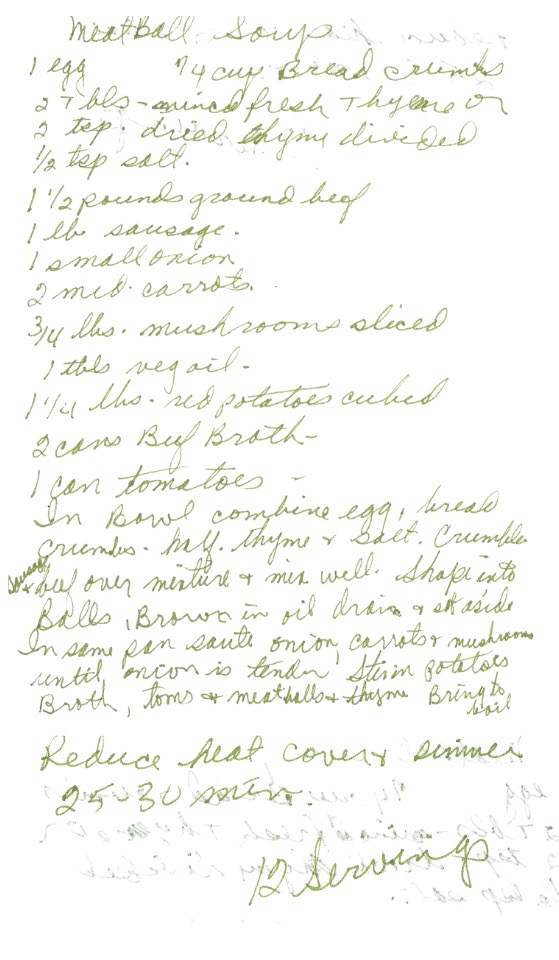 Meatball Soup
1 egg 1/4 cup Bread crumbs
2 Tbls - minced fresh Thyme or
2 tsp. dried thyme divided
1/2 tsp salt.
1 1/2 pounds ground beef
1 lb sausage.
1 small onion
2 med. carrots.
3/4 lbs. mushrooms sliced
1 tbls veg oil.
1 1/4 lbs. red potatoes cubed
2 cans Beef Broth -
1 can tomatoes -
In Bowl combine egg, bread
crumbs. half. thyme & salt. Crumble
sausage & beef over mixture & mix well. Shape into
Balls, Brown in oil drain & set aside
In same pan saute onion, carrots & mushrooms
until onion is tender Stir in potatoes
Broth, toms & meatballs & thyme Bring to
boil
Reduce heat cover & simmer
25-30 min.
12 Servings